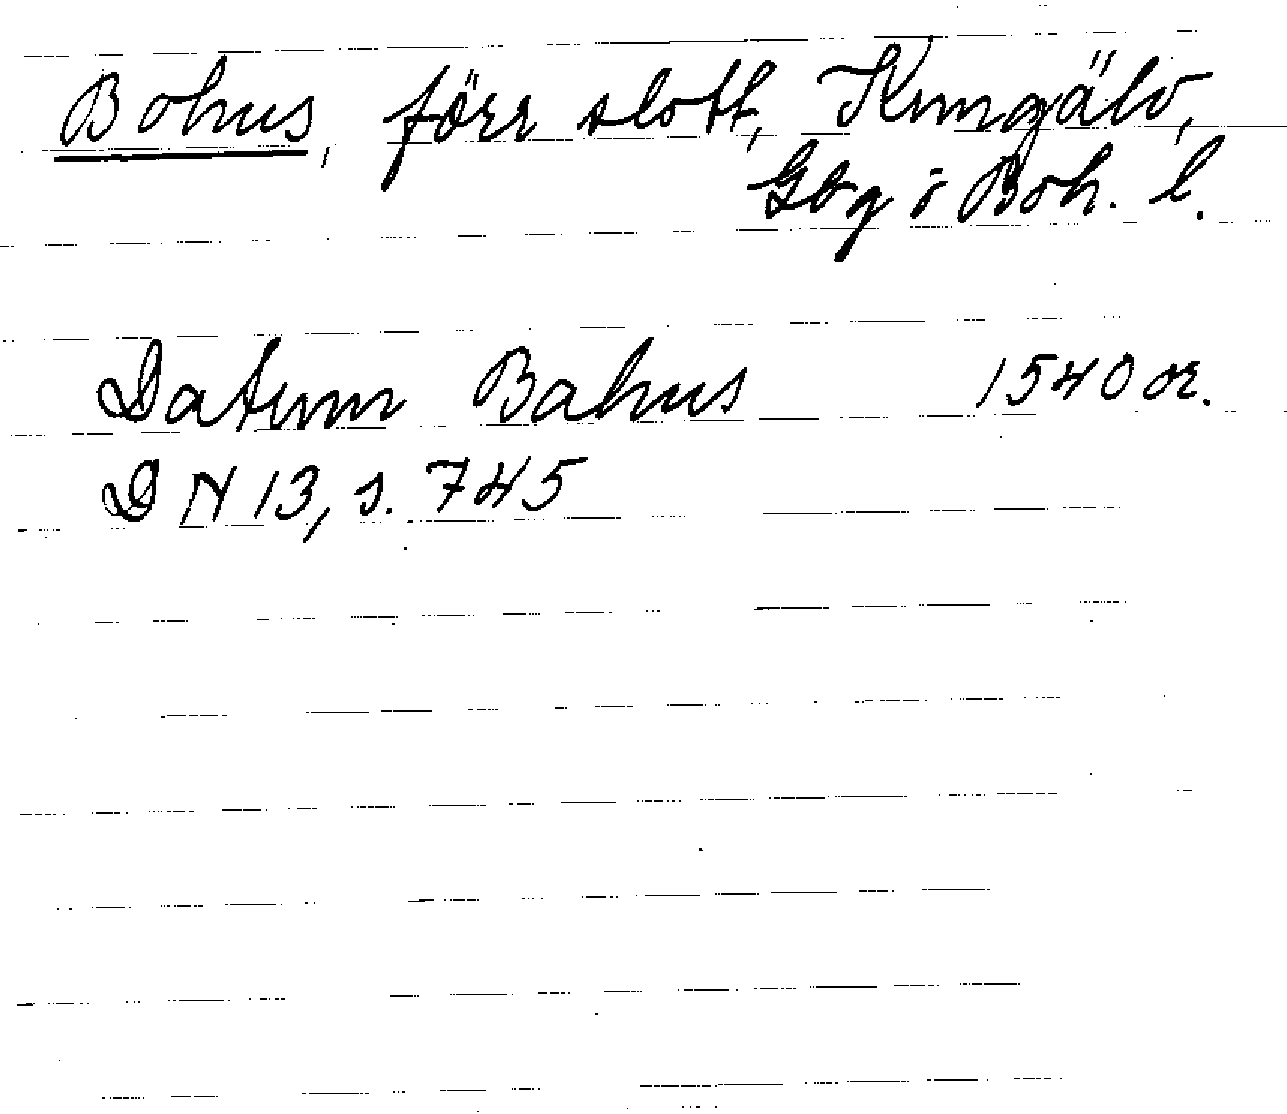 Bohus, förr slott, Kungälv,
Gbg o Boh. l.
Datum Bahus 1540 or.
DN 13, s. 745